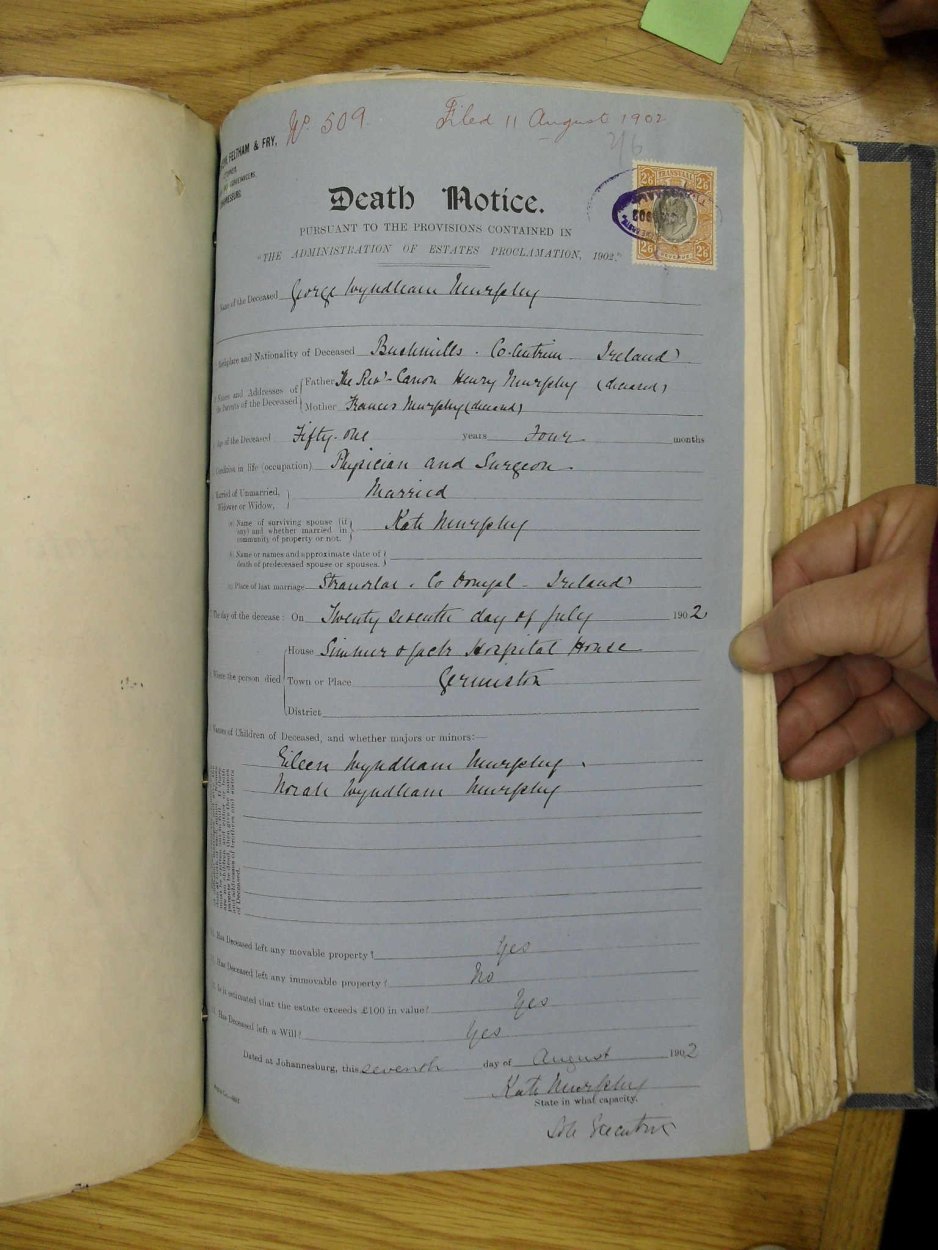 No 509. Filed 11 August 1902
2/6
FELTHAM & FRY,
JOHANNESBURG
TRANSVAAL
2/6 2/6
2/6 2/6
REVENUE
Death Notice.
PURSUANT TO THE PROVISIONS CONTAINED IN
"THE ADMINISTRATION OF ESTATES PROCLAMATION, 1902."
Name of the Deceased George Wyndham Murphy
Birthplace and Nationality of Deceased Bushmills. Co. Antrim Ireland
Names and Addresses of the Parents of the Deceased { Father The Revd. Canon Henry Murphy (deceased)
Mother Frances Murphy (deceased)
Age of the Deceased Fifty-one years Four months
Condition in life (occupation) Physician and Surgeon.
Married or Unmarried, Widower or Widow, } Married
(a) Name of surviving spouse (if any) and whether married in community of property or not. } Kate Murphy
(b) Name or names and approximate date of death of predeceased spouse or spouses. }
(c) Place of last marriage Stranorlar. Co Donegal - Ireland
The day of the decease: On Twenty seventh day of July 1902
Where the person died { House Simmer & Jack Hospital House
Town or Place Germiston
District
Names of Children of Deceased, and whether majors or minors:—
Eileen Wyndham Murphy.
Norah Wyndham Murphy
and addresses of brothers and sisters
of Deceased.
Has Deceased left any movable property? Yes
Has Deceased left any immovable property? No
Is it estimated that the estate exceeds £100 in value? Yes
Has Deceased left a Will? Yes
Dated at Johannesburg, this seventh day of August 1902
Kate Murphy
State in what capacity.
Sole Executrix